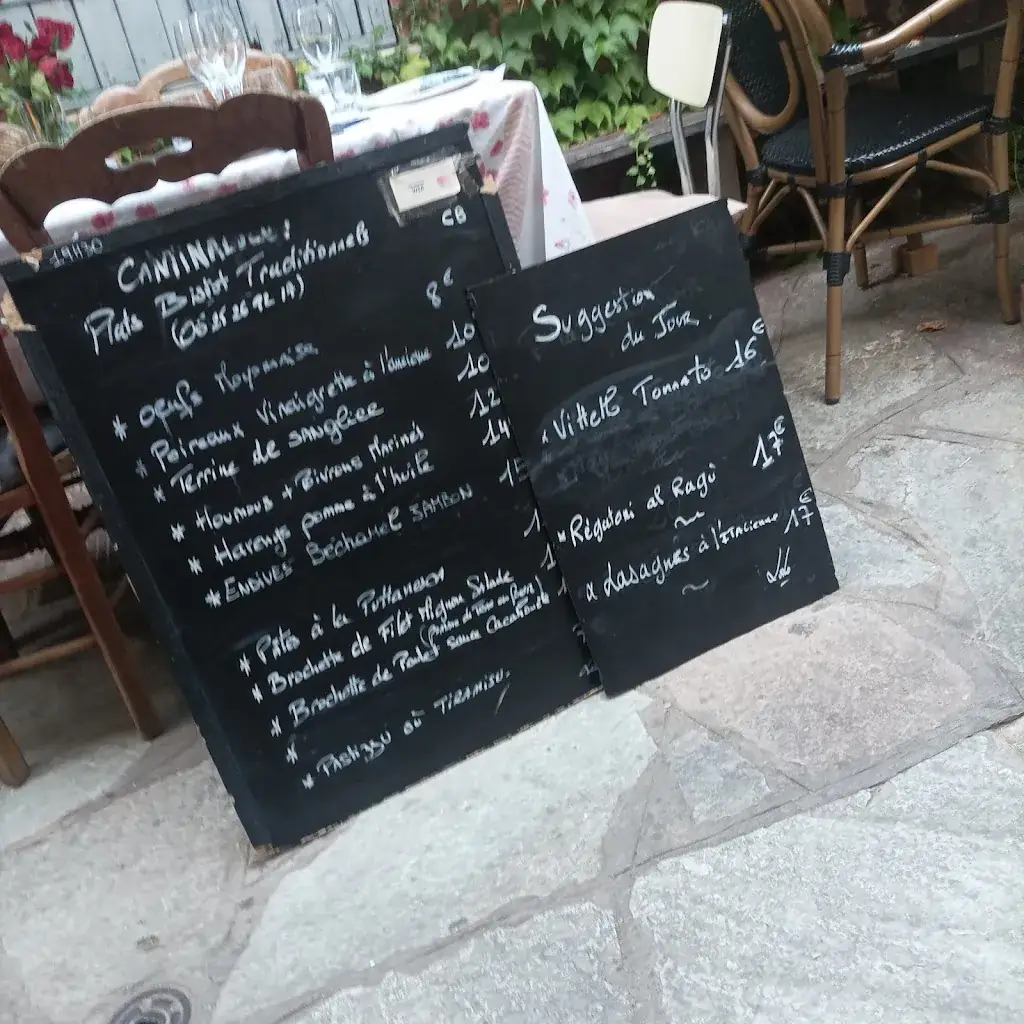 19H30
CANTINALOUE:
Plats Bistot Traditionnels
(06 25 26 92 19)
CB
* Oeufs Mayonnaise 8€
* Poireaux Vinaigrette à l'ancienne 10
* Terrine de SANGLIER 10
* Houmous + Poivrons Marinés 12
* Harengs pomme à l'huile 14
* ENDIVES Béchamel JAMBON 15
* Pâtes à la Puttanesca
* Brochette de Filet Mignon Salade
* Brochette de Poulet Sauce Cacahouète
*
* PASTIZZU OU TIRAMISU.
Suggestion
du JOUR
* Vittello Tonnato 16€
* Rigatoni al Ragù 17€
~
* Lasagnes à l'Italienne 17€
~